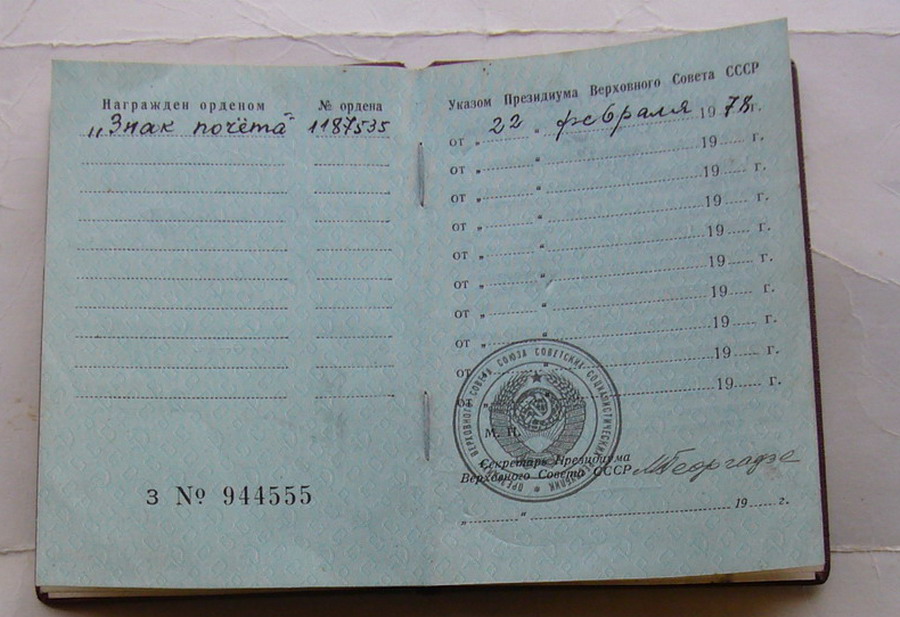 Награжден орденом № ордена
„Знак почёта“ 1187535
З № 944555
Указом Президиума Верховного Совета СССР
от „ 22 “ февраля 1978г.
от „ “ 19 г.
от „ “ 19 г.
от „ “ 19 г.
от „ “ 19 г.
от „ “ 19 г.
от „ “ 19 г.
от „ “ 19 г.
от „ “ 19 г.
от „ “ 19 г.
М. П.
Секретарь Президиума
Верховного Совета СССР МГеоргадзе
„ “ 19 г.
ВЕРХОВНОГО СОВЕТА СОЮЗА СОВЕТСКИХ СОЦИАЛИСТИЧЕСКИХ